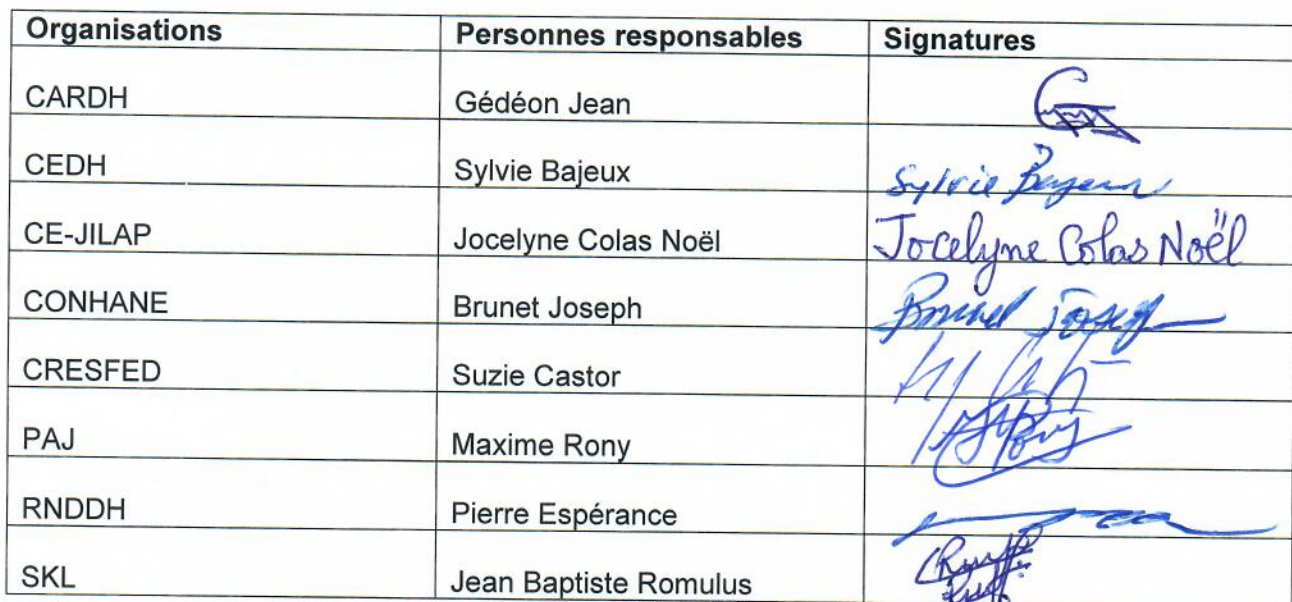 Organisations Personnes responsables Signatures
CARDH Gédéon Jean
CEDH Sylvie Bajeux Sylvie Bajeux
CE-JILAP Jocelyne Colas Noël Jocelyne Colas Noël
CONHANE Brunet Joseph Brunet Joseph
CRESFED Suzie Castor
PAJ Maxime Rony
RNDDH Pierre Espérance
SKL Jean Baptiste Romulus